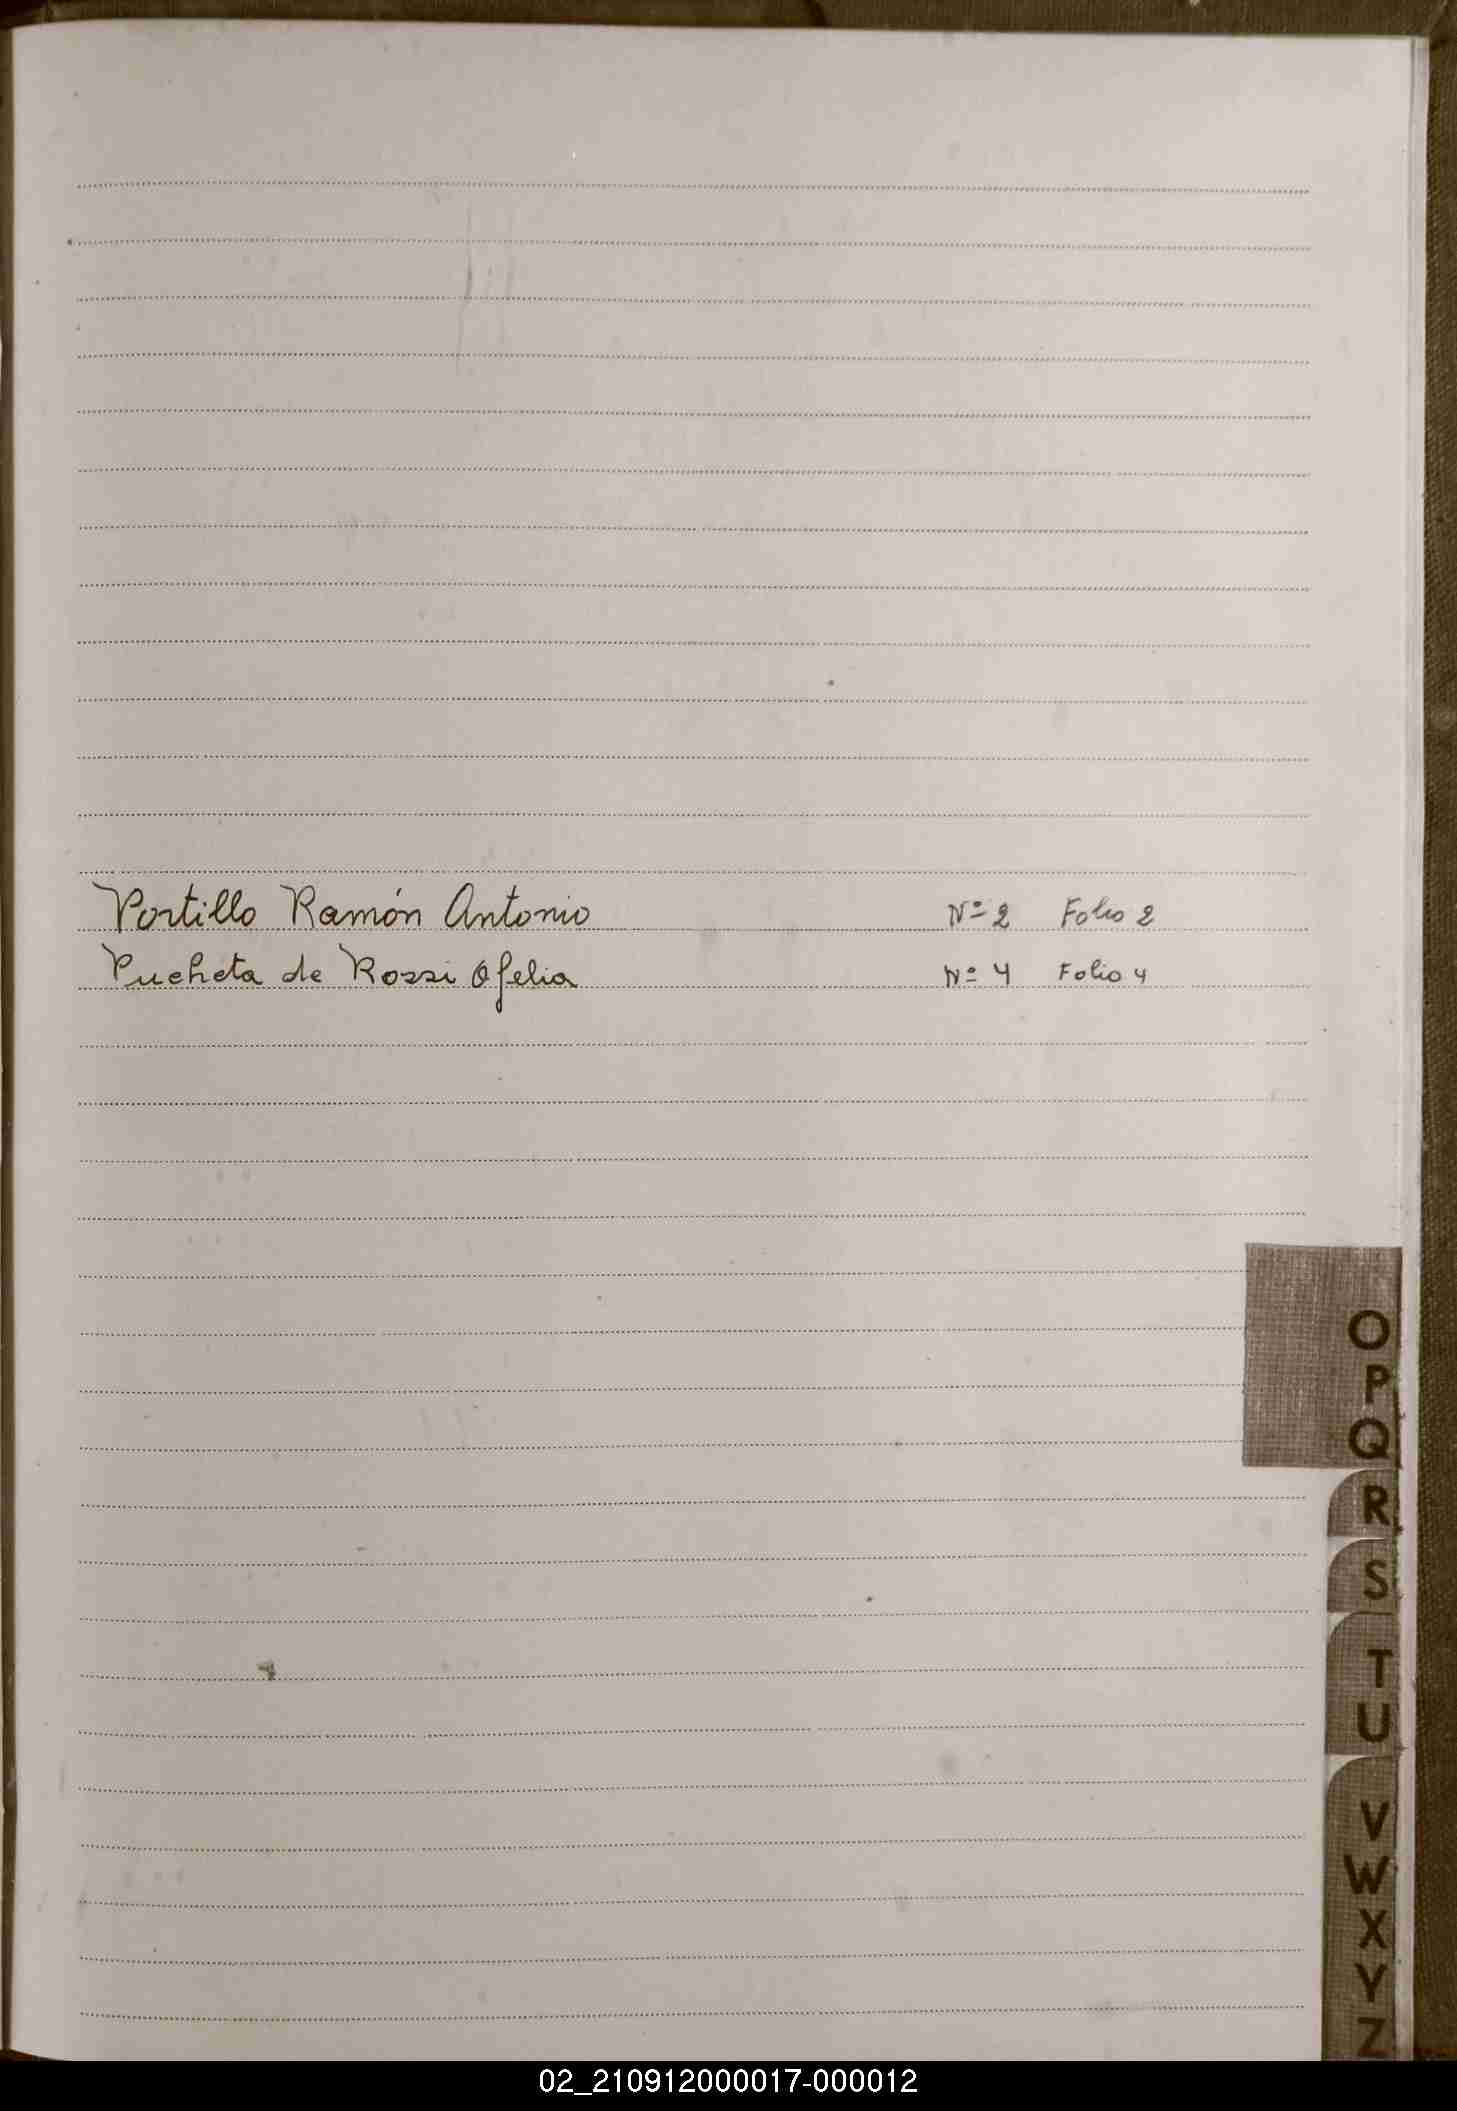 Portillo Ramón Antonio Nº 2 Folio 2
Pucheta de Rossi Ofelia Nº 4 Folio 4
O
P
Q
R
S
T
U
V
W
X
Y
Z
02_210912000017-000012